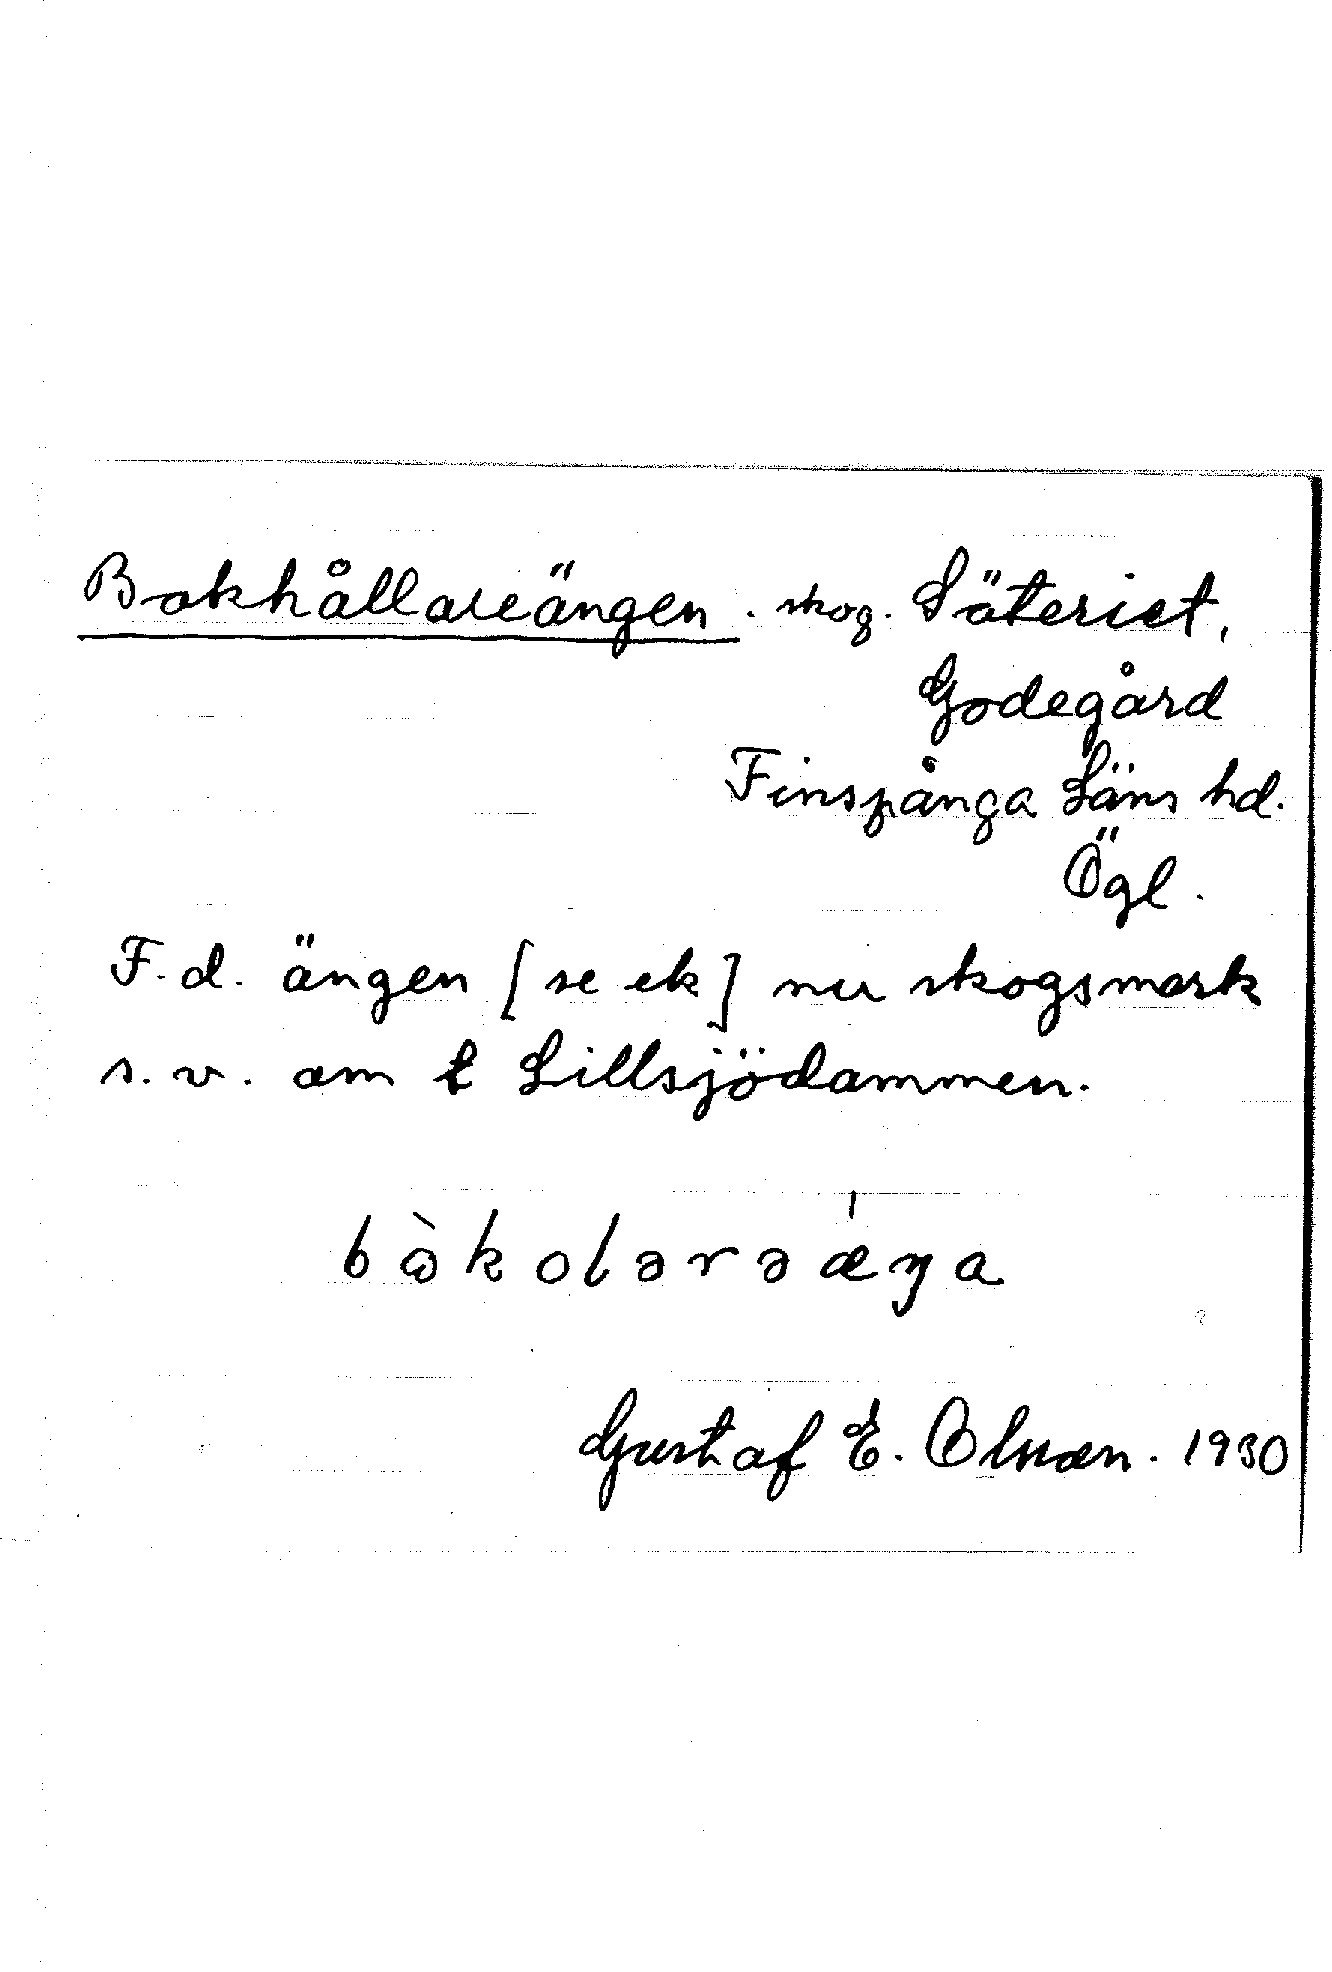 Bokhållareängen. skog. Säteriet,
Godegård
Finspånga Läns hd.
Ögl.
F.d. ängen [se ek] nu skogsmark
s.v. om t Lillsjödammen.
bὼkolərəæ̍ŋa
Gustaf E. Olsson. 1930